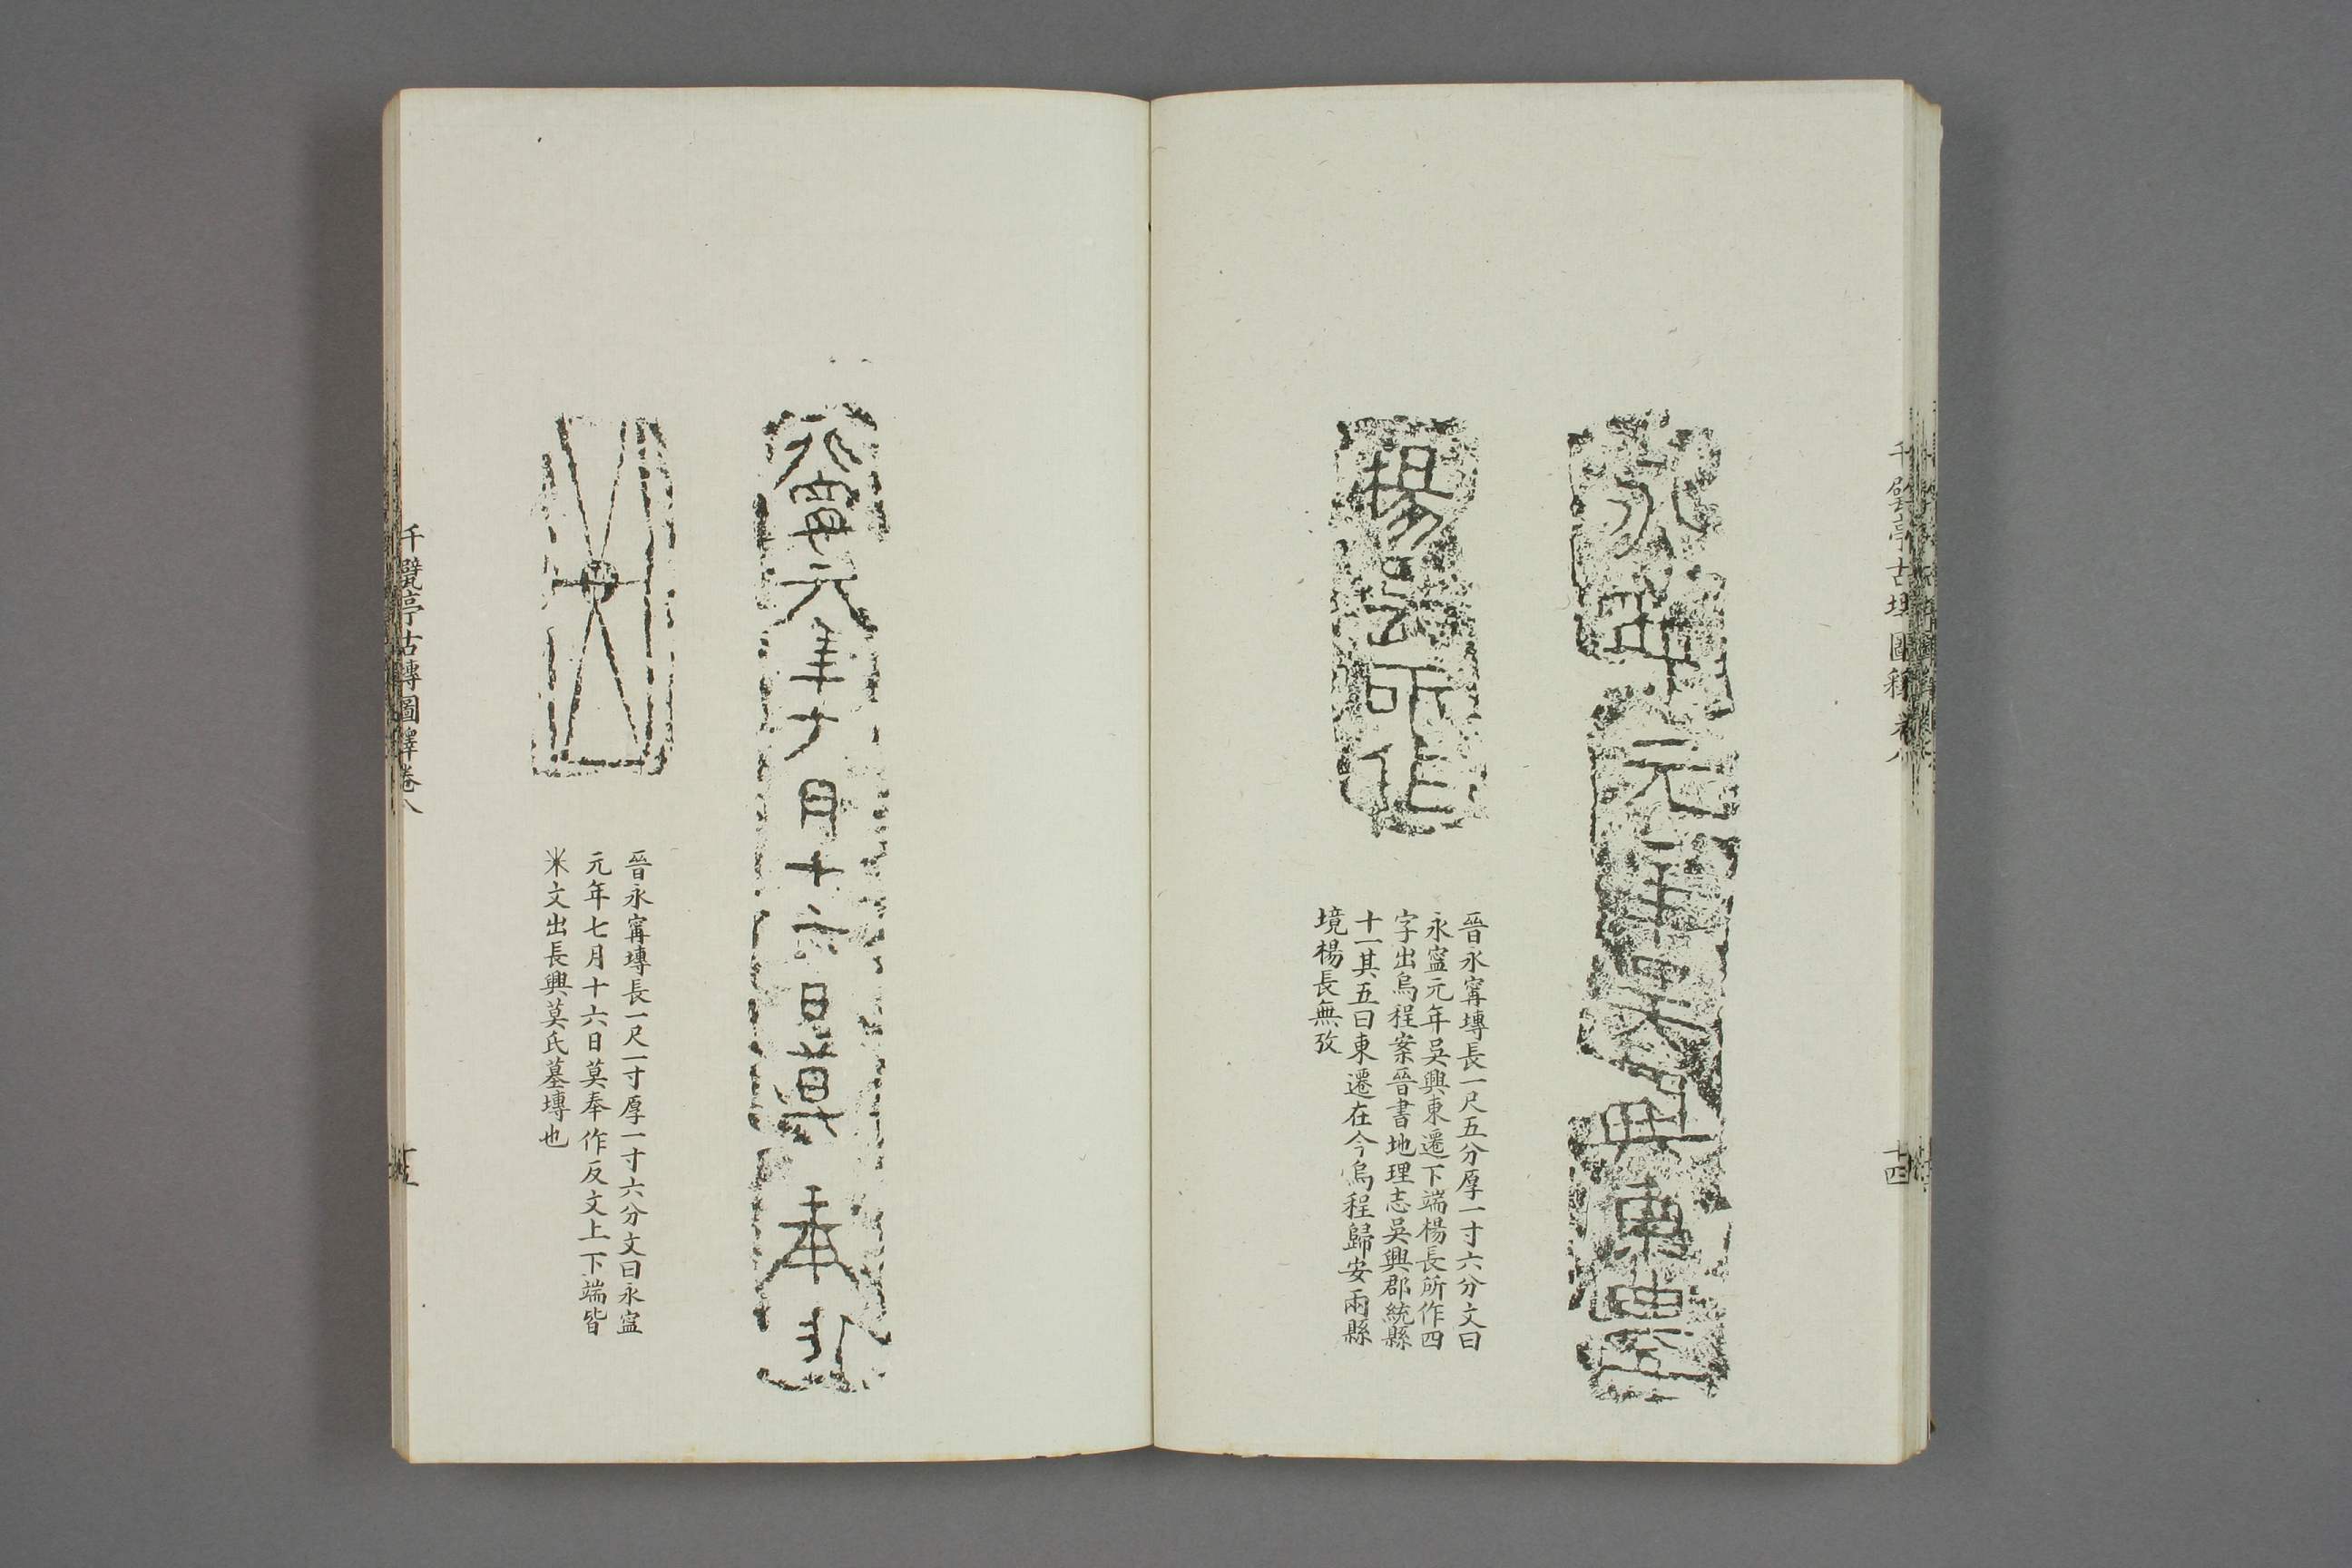 永寧元年吳興東遷
楊長所作
晉永寗塼長一尺五分厚一寸六分文曰
永寍元年吳興東遷下端楊長所作四
字出烏程案晉書地理志吳興郡統縣
十一其五曰東遷在今烏程歸安兩縣
境楊長無攷
十四
永寧元年七月十六日莫奉作
晉永寗塼長一尺一寸厚一寸六分文曰永寍
元年七月十六日莫奉作反文上下端皆
米文出長興莫氏墓塼也
千甓亭古塼圖釋卷八